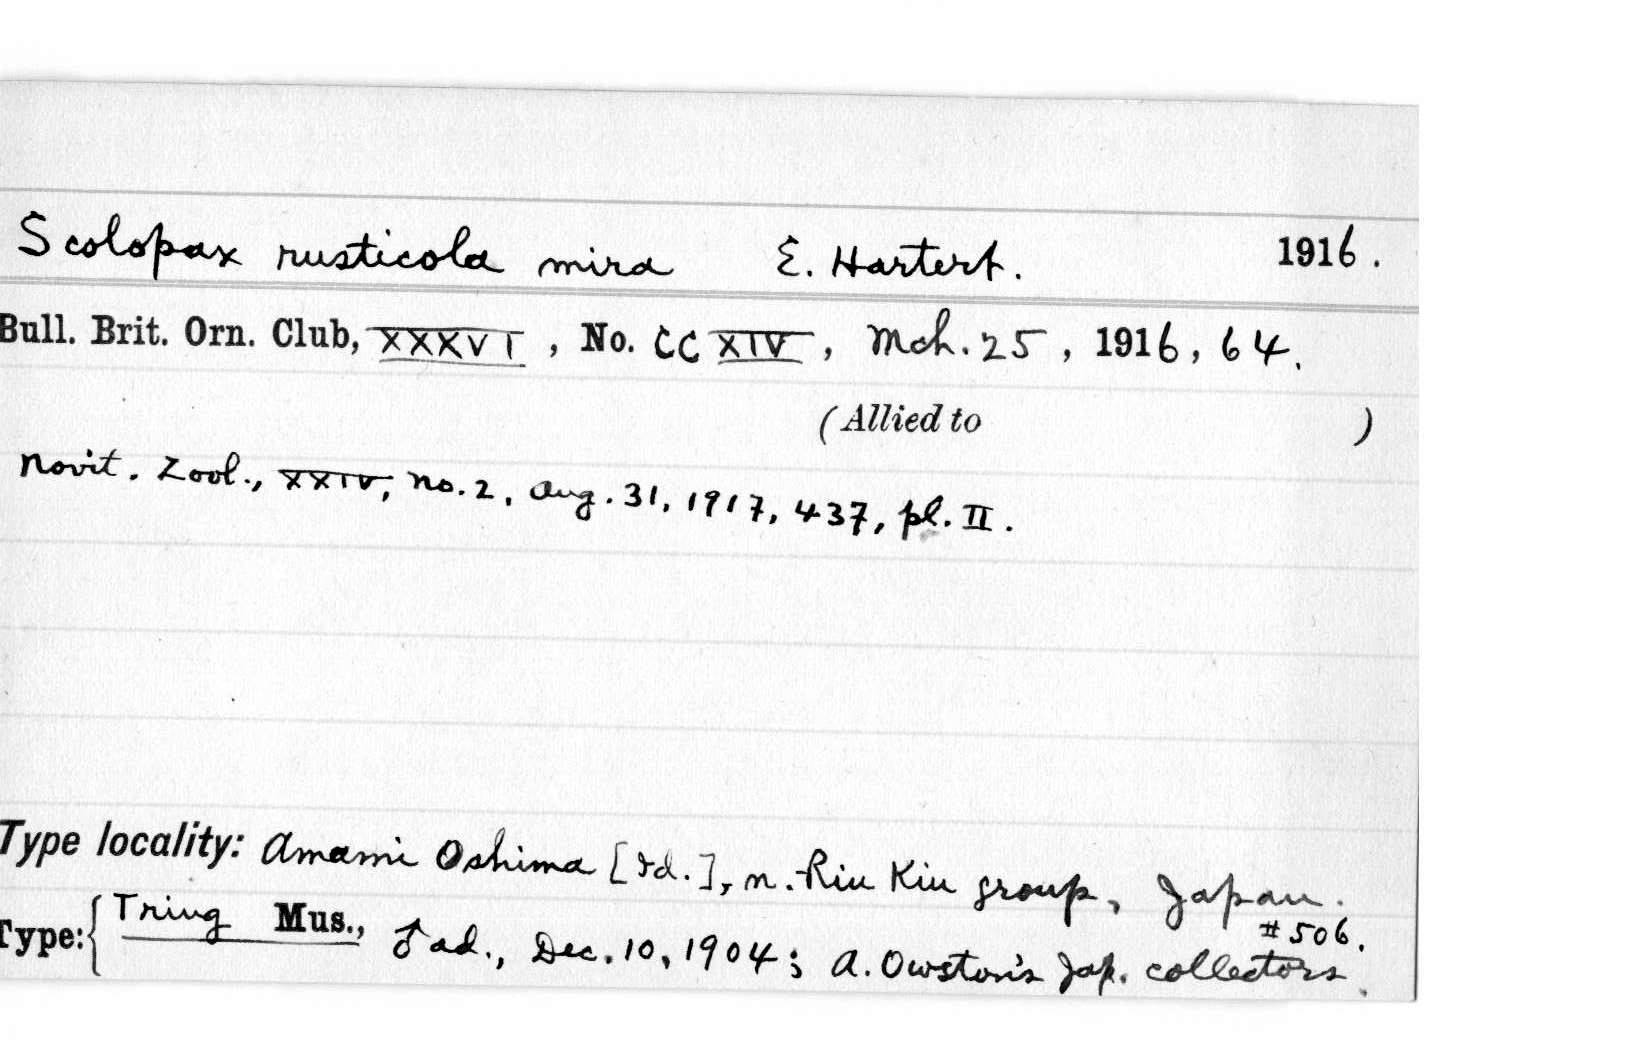 Scolopax rusticola mira E. Hartert. 1916.
Bull. Brit. Orn. Club, XXXVI, No. CCXIV, Mch. 25, 1916, 64.
(Allied to )
Novit. Zool., XXIV, no. 2, Aug. 31, 1917, 437, pl. II.
Type locality: Amami Oshima [Id.], n. Riu Kiu group, Japan.
#506.
Type: { Tring Mus., ♂ ad., Dec. 10, 1904; A. Owston's Jap. collectors.